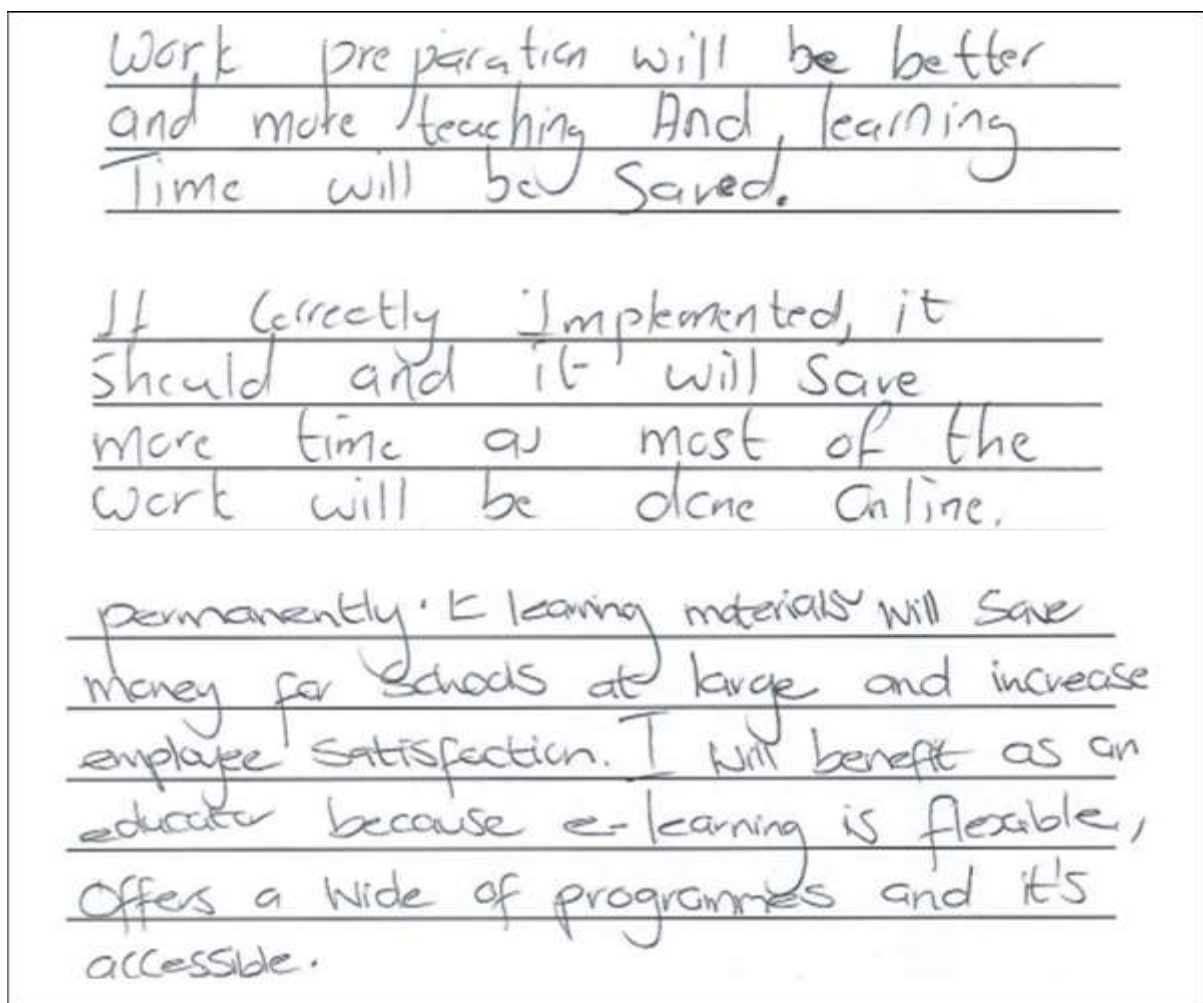 Work preparation will be better
and more teaching And learning
Time will be Saved.
If Correctly Implemented, it
Should and it will Save
more time as most of the
work will be done Online.
permanently. E learning materials will Save
money for Schools at large and increase
employee satisfaction. I will benefit as an
educator because e-learning is flexible,
Offers a wide of programmes and it's
accessible.